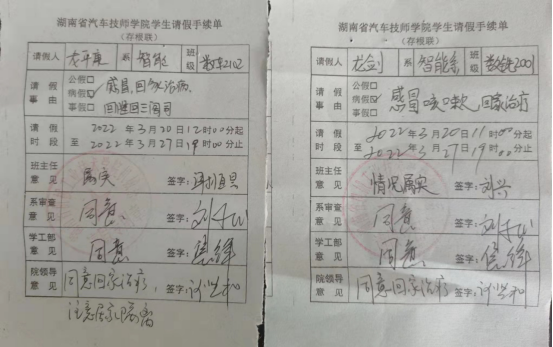 湖南省汽车技师学院学生请假手续单
(存根联)
请假人
系
智能
班级
请假事由
公假□
病假☑
事假□
感冒,回家治病
请假时段
2022年3月20日12时00分起
至 2022年3月27日19时00分止
班主任意见
属实
签字:
系审查意见
同意
签字:
学工部意见
同意
签字:
院领导意见
同意回家治疗,
签字:
注意居家隔离
湖南省汽车技师学院学生请假手续单
(存根联)
请假人
龙剑
系
智能系
班级
请假事由
公假□
病假☑
事假□
感冒咳嗽,回家治疗
请假时段
2022年3月20日11时00分起
至 2022年3月27日19时00分止
班主任意见
情况属实
签字:刘兴
系审查意见
同意
签字:
学工部意见
同意
签字:
院领导意见
同意回家治疗
签字: